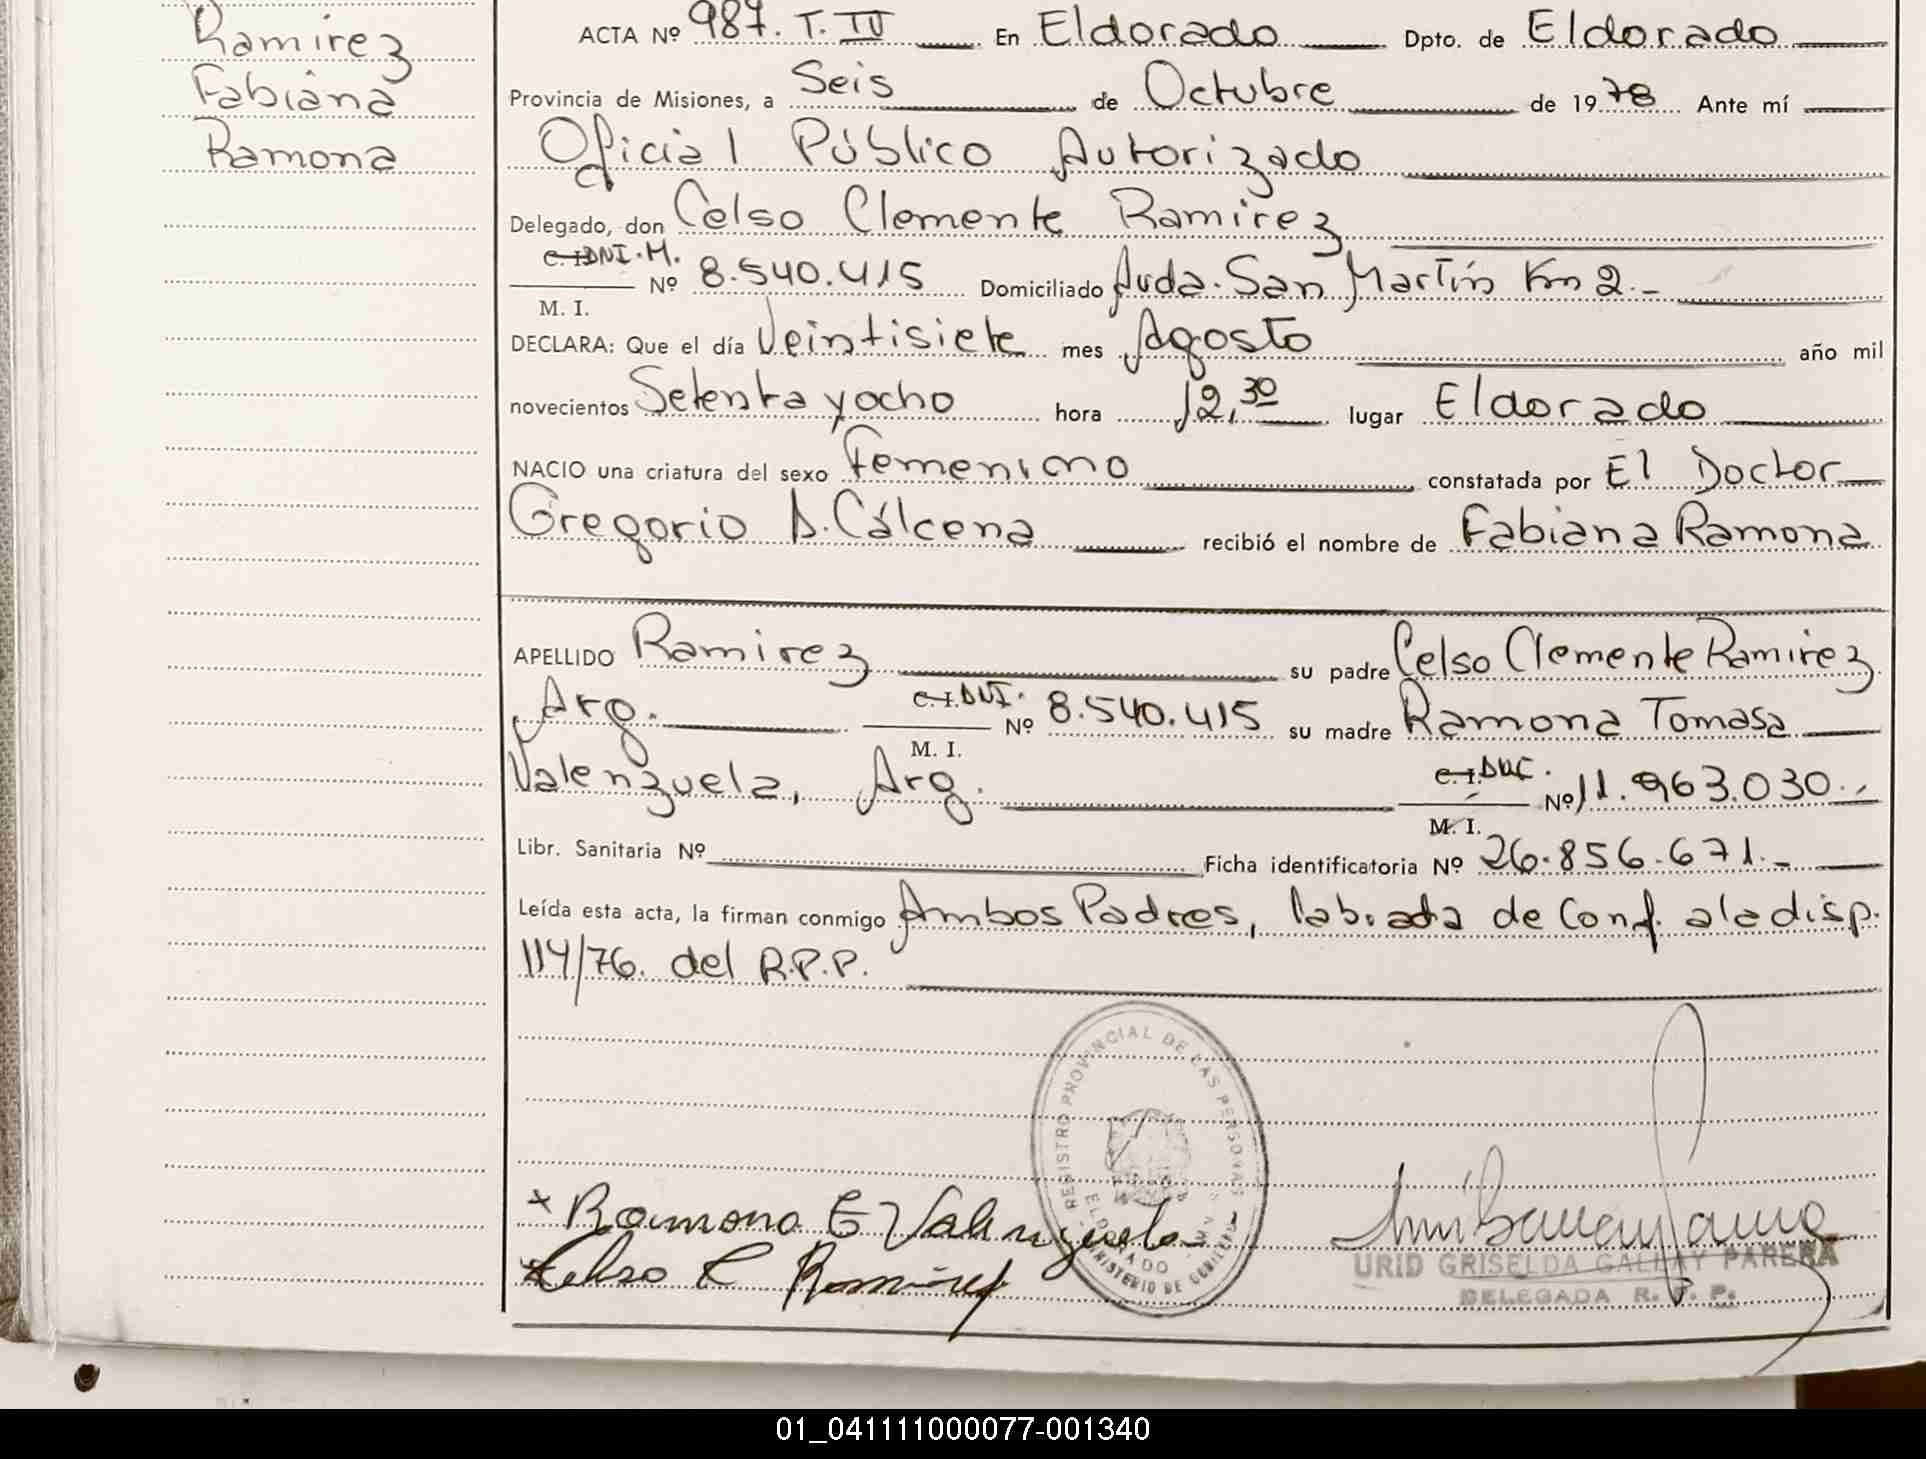 Ramirez
Fabiana
Ramona
ACTA Nº 987. T. IV En Eldorado Dpto. de Eldorado
Provincia de Misiones, a Seis de Octubre de 1978 Ante mí
Oficial Público Autorizado
Delegado, don Celso Clemente Ramirez
C. I. DNI. M.
Nº 8.540.415 Domiciliado Avda. San Martín Km 2.-
M. I.
DECLARA: Que el día Veintisiete mes Agosto año mil
novecientos Setenta y ocho hora 12,30 lugar Eldorado
NACIO una criatura del sexo Femenino constatada por El Doctor
Gregorio A. Cálcena recibió el nombre de Fabiana Ramona
APELLIDO Ramirez su padre Celso Clemente Ramirez
Arg. C. I. DNI. Nº 8.540.415 su madre Ramona Tomasa
M. I.
Valenzuela, Arg. C. I. Nº 11.963.030.-
M. I.
Libr. Sanitaria Nº Ficha identificatoria Nº 26.856.671.-
Leída esta acta, la firman conmigo Ambos Padres, labrada de Conf. a la disp.
114/76. del R.P.P.
REGISTRO PROVINCIAL DE LAS PERSONAS
ELDORADO
MINISTERIO DE GOBIERNO
Ramona Valenzuela
Celso C Ramirez
URID GRISELDA GALLAY PARERA
DELEGADA R. P. P.
01_041111000077-001340